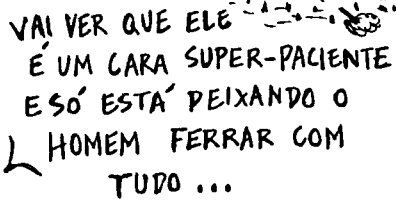 VAI VER QUE ELE
É UM CARA SUPER-PACIENTE
E SÓ ESTÁ DEIXANDO O
HOMEM FERRAR COM
TUDO...